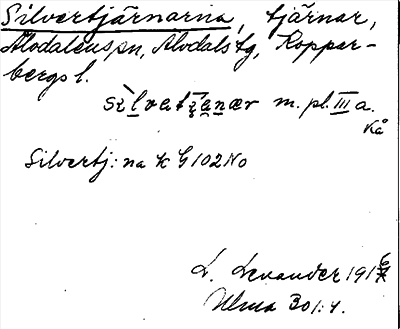 Silvertjärnarna, tjärnar,
Älvdalens sn, Älvdals tg, Koppar-
bergs l.
m. pl. III a.
Kå
Silvertj:na k G 102 No
L. Levander 191
Ulma 301:4.